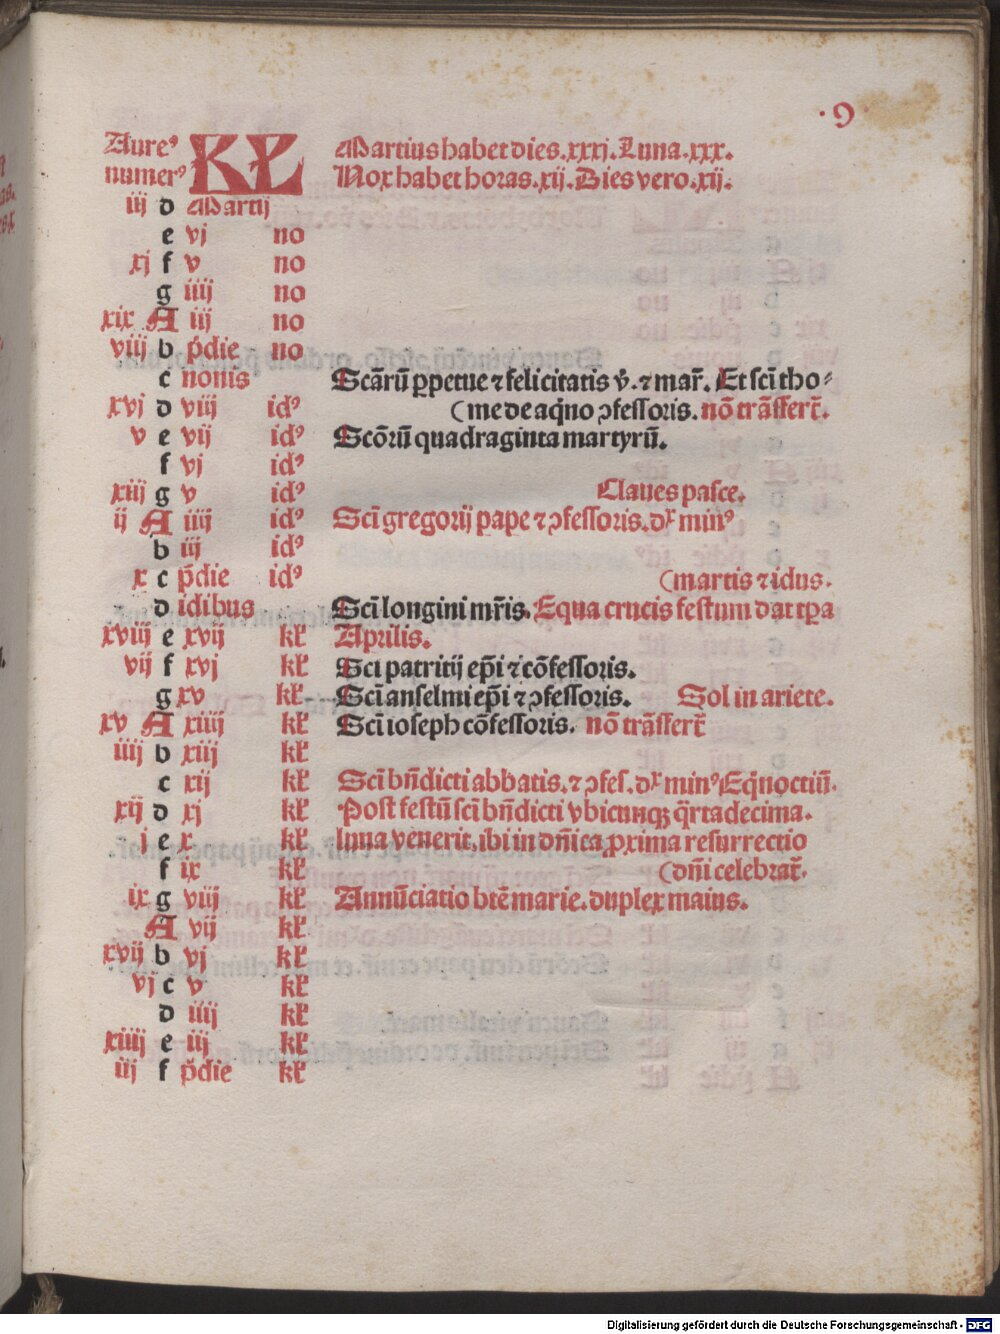 .9
Aureꝰ KL Martius habet dies.xxxj.Luna.xxx.
numerꝰ Nox habet horas.xij.Dies vero.xij.
iij d Martij
e vj no
xj f v no
g iiij no
xix A iij no
viij b p̄die no
c nonis Scārū ꝑpetue ⁊ felicitatis v̄.⁊ mar̄. Et scī tho⸗
xvj d viij idꝰ (me de aq̄no ꝯfessoris. nō trāsfert̄.
v e vij idꝰ Scōrū quadraginta martyrū.
f vj idꝰ
xiij g v idꝰ Claues pasce.
ij A iiij idꝰ Scī gregorij pape ⁊ ꝯfessoris.dx̄ minꝰ
b iij idꝰ
x c p̄die idꝰ (martis ⁊ idus.
d idibus Scī longini mr̄is. Equa crucis festum dat xp̄a
xviij e xvij kł Aprilis.
vij f xvj kł Scī patritij ep̄i ⁊ cōfessoris.
g xv kł Scī anselmi ep̄i ⁊ ꝯfessoris. Sol in ariete.
xv A xiiij kł Scī ioseph cōfessoris. nō trāsfert̄
iiij b xiij kł
c xij kł Scī bn̄dicti abbatis.⁊ ꝯfes.dx̄ minꝰ Eq̄noctiū.
xij d xj kł Post festū scī bn̄dicti vbicunqꝫ q̄rtadecima.
j e x kł luna venerit,ibi in dn̄ica ꝓxima resurrectio
f ix kł (dn̄i celebrat̄.
ix g viij kł Annūciatio btē marie.duplex maius.
A vij kł
xvij b vj kł
vj c v kł
d iiij kł
xiiij e iij kł
iij f p̄die kł
Digitalisierung gefördert durch die Deutsche Forschungsgemeinschaft - DFG